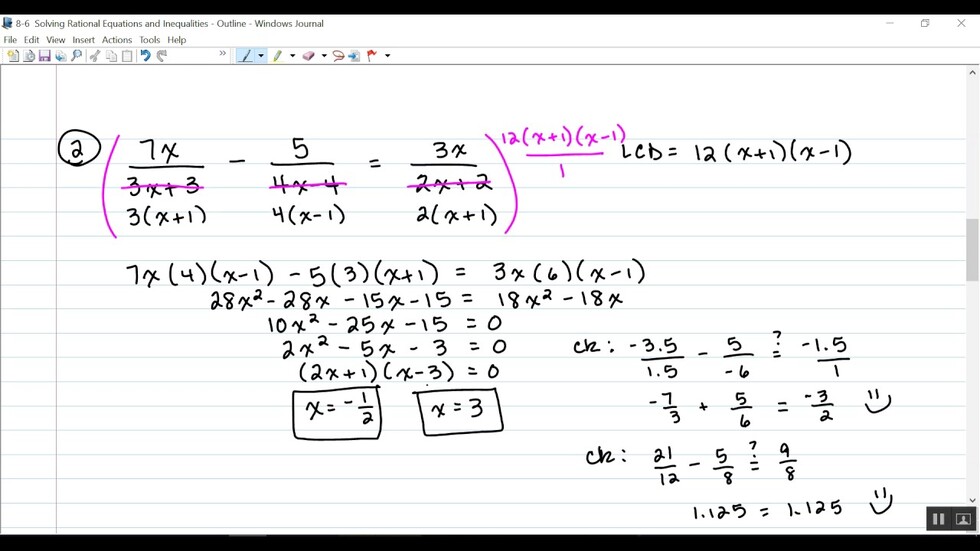 8-6 Solving Rational Equations and Inequalities - Outline - Windows Journal
File Edit View Insert Actions Tools Help
② ( 7x/(3x+3) - 5/(4x-4) = 3x/(2x+2) ) 12(x+1)(x-1)/1 LCD = 12(x+1)(x-1)
3(x+1) 4(x-1) 2(x+1)
7x(4)(x-1) - 5(3)(x+1) = 3x(6)(x-1)
28x² - 28x - 15x - 15 = 18x² - 18x
10x² - 25x - 15 = 0
2x² - 5x - 3 = 0
(2x+1)(x-3) = 0
x = -1/2 x = 3
ck: -3.5/1.5 - 5/-6 ?= -1.5/1
-7/3 + 5/6 = -3/2
ck: 21/12 - 5/8 ?= 9/8
1.125 = 1.125